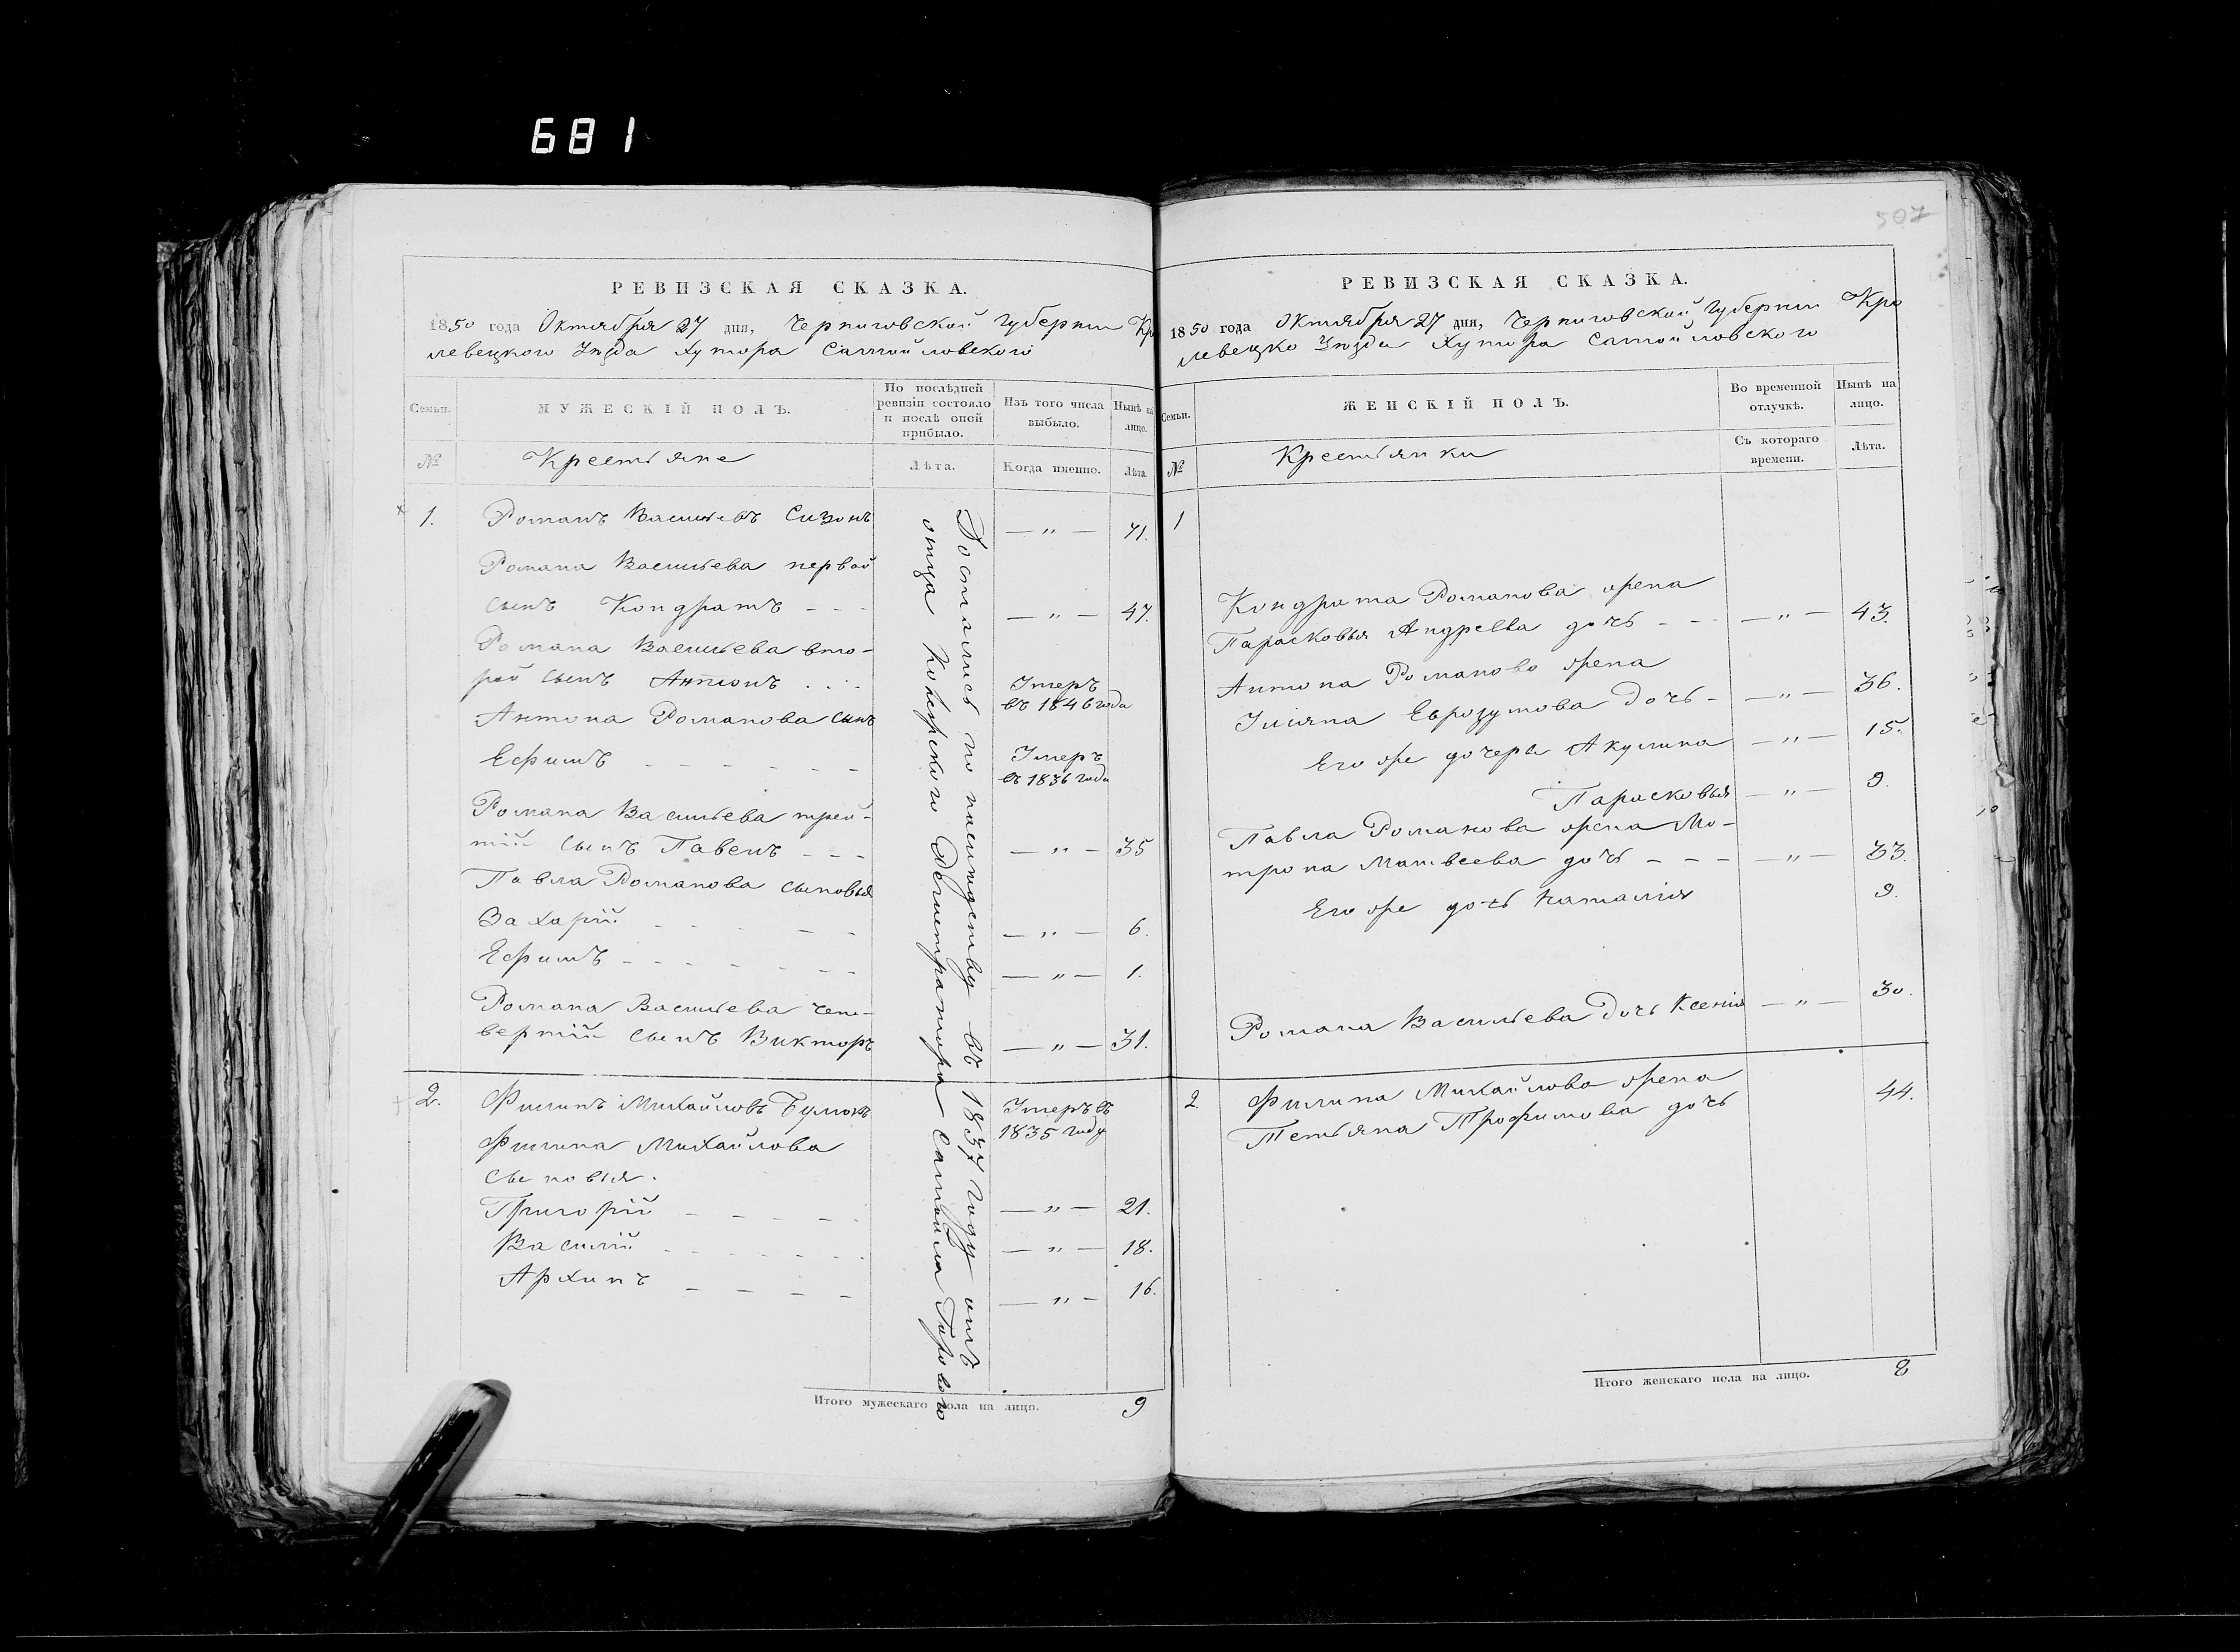 681
507
РЕВИЗСКАЯ СКАЗКА.
1850 года Октября 27 дня, Черниговской Губернии Кро
левецкого Уезда Хутора Самойловского
Семьи.
МУЖЕСКІЙ ПОЛЪ.
По послѣдней
ревизіи состояло
и послѣ оной
прибыло.
Изъ того числа
выбыло.
Нынѣ на
лицо.
№
Крестьяне
Лѣта.
Когда именно.
Лѣта.
1. Романъ Васильевъ Сизонъ — „ — 71.
Романа Васильева первой
сынъ Кондратъ - - - — „ — 47.
Романа Васильева вто-
рой сынъ Антонъ . . . Умеръ
въ 1846 года
Антона Романова сынъ
Ефимъ - - - - - - Умеръ
въ 1836 года
Романа Васильева трей-
тій сынъ Павелъ - - - — „ — 35
Павла Романова сыновья
Захарій - - - - - — „ — 6.
Ефимъ - - - - - - — „ — 1.
Романа Васильева чет-
вертій сынъ Викторъ — „ — 31.
2. Филипъ Михайловъ Умеръ въ
1835 году
Филипа Михайлова
сыновья.
Григорій - - - - - — „ — 21.
Василій - - - - - - — „ — 18.
Архипъ - - - - — „ — 16.
Достались по наследству въ 1837 году отъ
отца Самойла
Итого мужескаго пола на лицо. 9
РЕВИЗСКАЯ СКАЗКА.
1850 года Октября 27 дня, Черниговской Губернии Кро
левецко Уезда Хутора Самойловского
Семьи.
ЖЕНСКІЙ ПОЛЪ.
Во временной
отлучкѣ.
Нынѣ на
лицо.
№
Крестьянки
Съ котораго
времени.
Лѣта.
1
Кондрата Романова жена
Парасковья Андреева дочь - - - — „ — 43.
Антона Романово жена
Уліяна дочь - — „ — 36.
Его же дочеры Акулина — „ — 15.
Парасковья — „ — 9.
Павла Романова жена Мо-
трона Матвеева дочь - - - — „ — 33.
Его же дочь Наталія 9.
Романа Васильева Дочь Ксенія — „ — 30.
2. Филипа Михайлова жена 44.
Тетьяна Трофимова дочь
Итого женскаго пола на лицо. 8